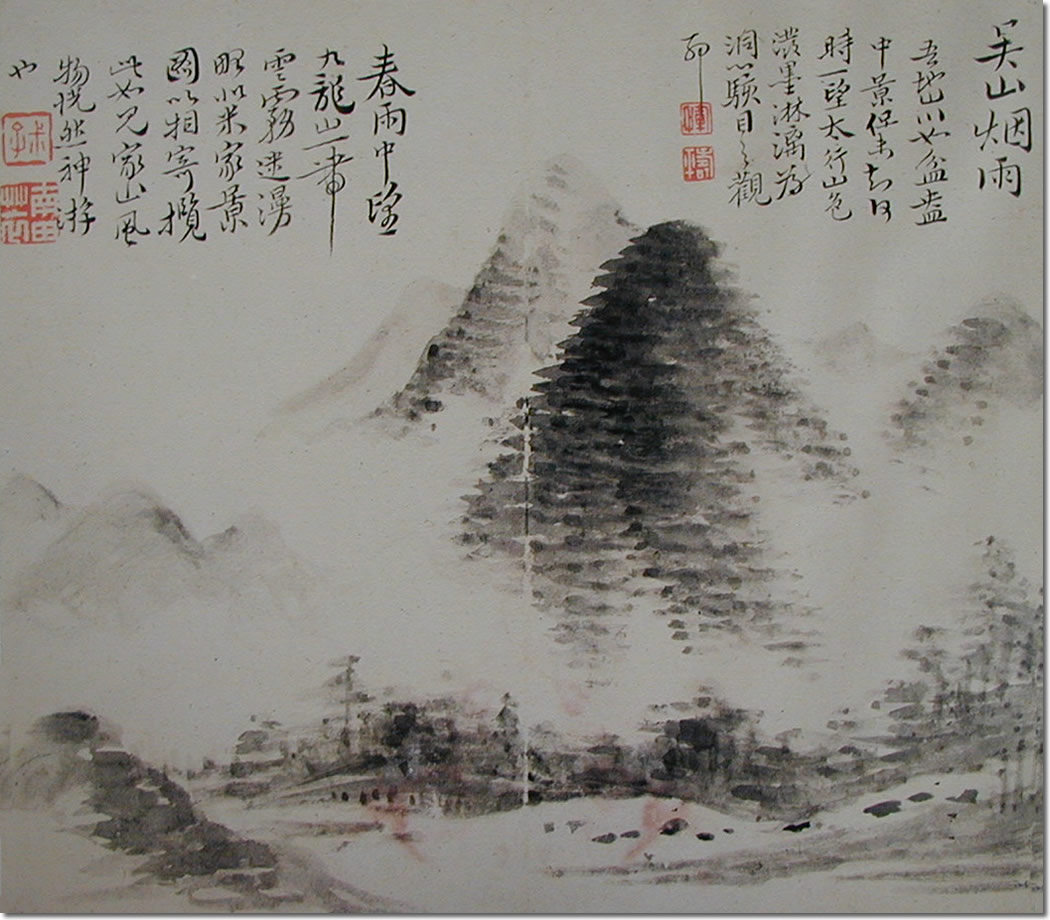 吴山烟雨
吾川如盆盎
中景未知何
時一望太行山色
潑墨淋漓为
洞心駭目之觀
耶
春雨中望
九龍山一帶
雲霧迷漫
酷似米家景
圖以相寄攬
此如見家山風
物恍然神游
也